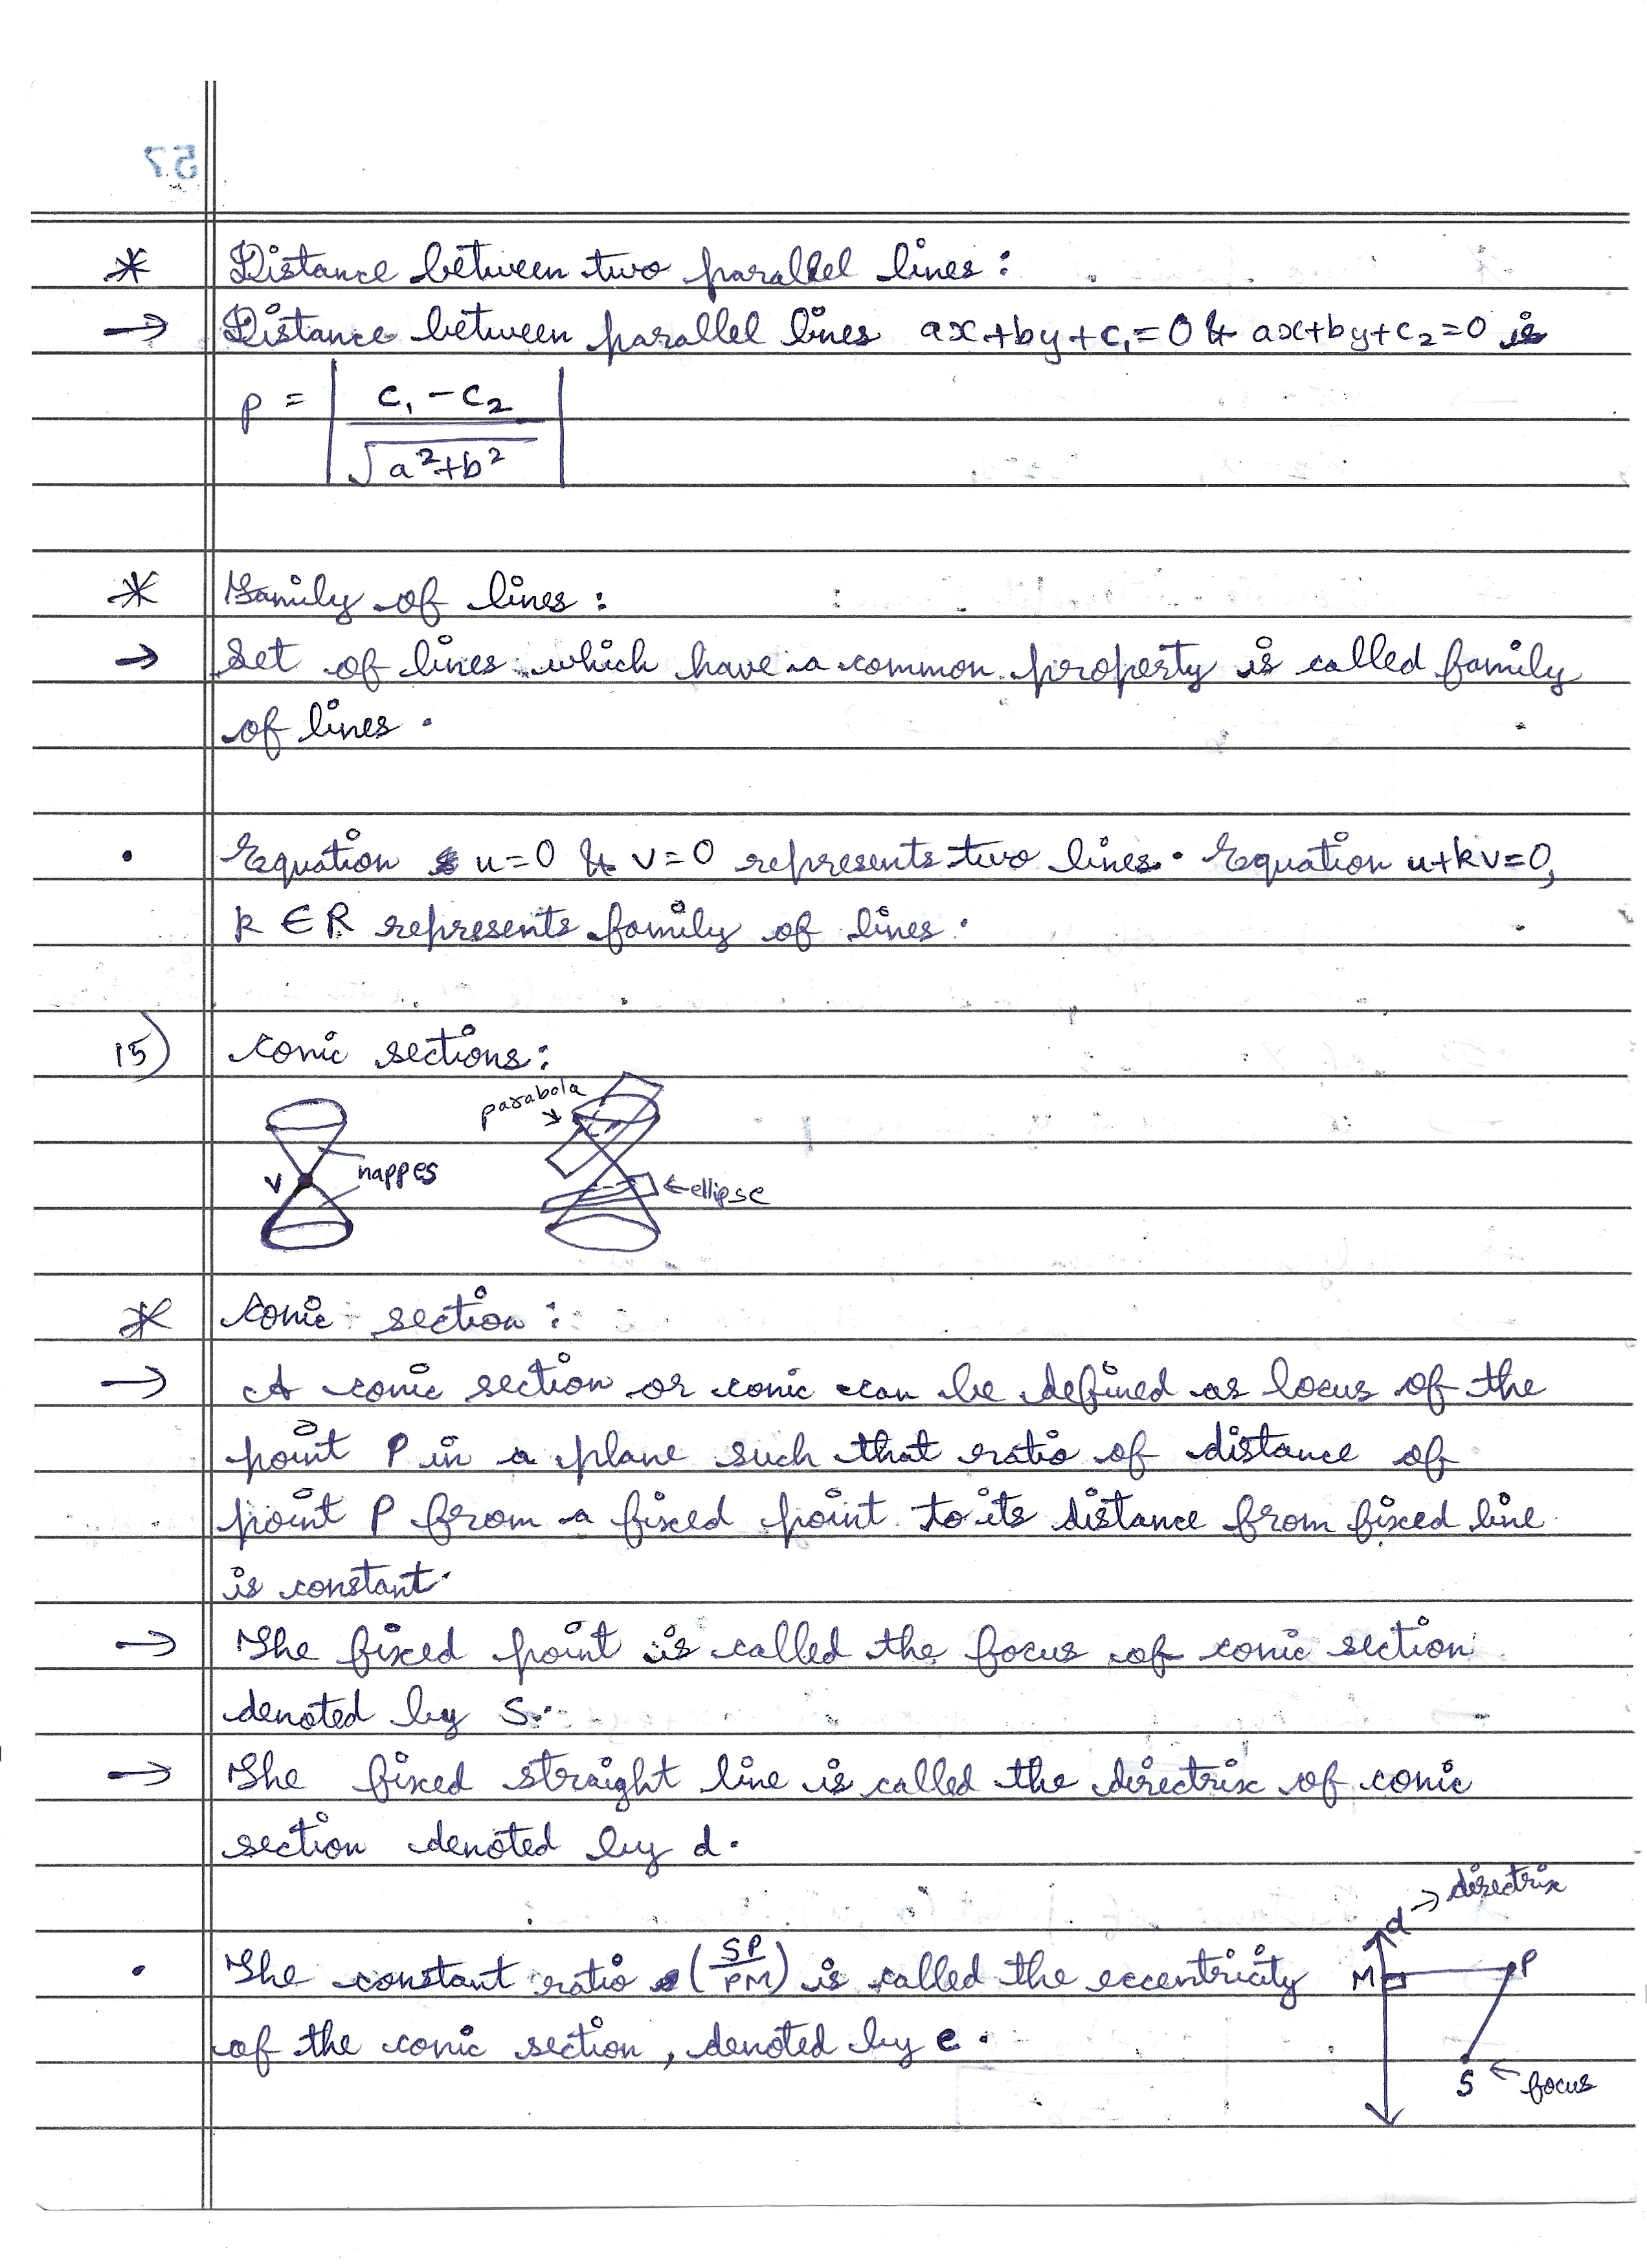 57
* Distance between two parallel lines:
→ Distance between parallel lines ax+by+c₁=0 & ax+by+c₂=0 is
p = | (c₁-c₂)/√(a²+b²) |
* Family of lines:
→ Set of lines which have a common property is called family
of lines.
• Equation u=0 & v=0 represents two lines. Equation u+kv=0,
k ∈ R represents family of lines.
15) Conic sections:
parabola
nappes
V
←ellipse
* Conic section:
→ A conic section or conic can be defined as locus of the
point P in a plane such that ratio of distance of
point P from a fixed point to its distance from fixed line
is constant.
→ The fixed point is called the focus of conic section
denoted by S.
→ The fixed straight line is called the directrix of conic
section denoted by d.
d → directrix
• The constant ratio (SP/PM) is called the eccentricity
M P
of the conic section, denoted by e.
S ← focus